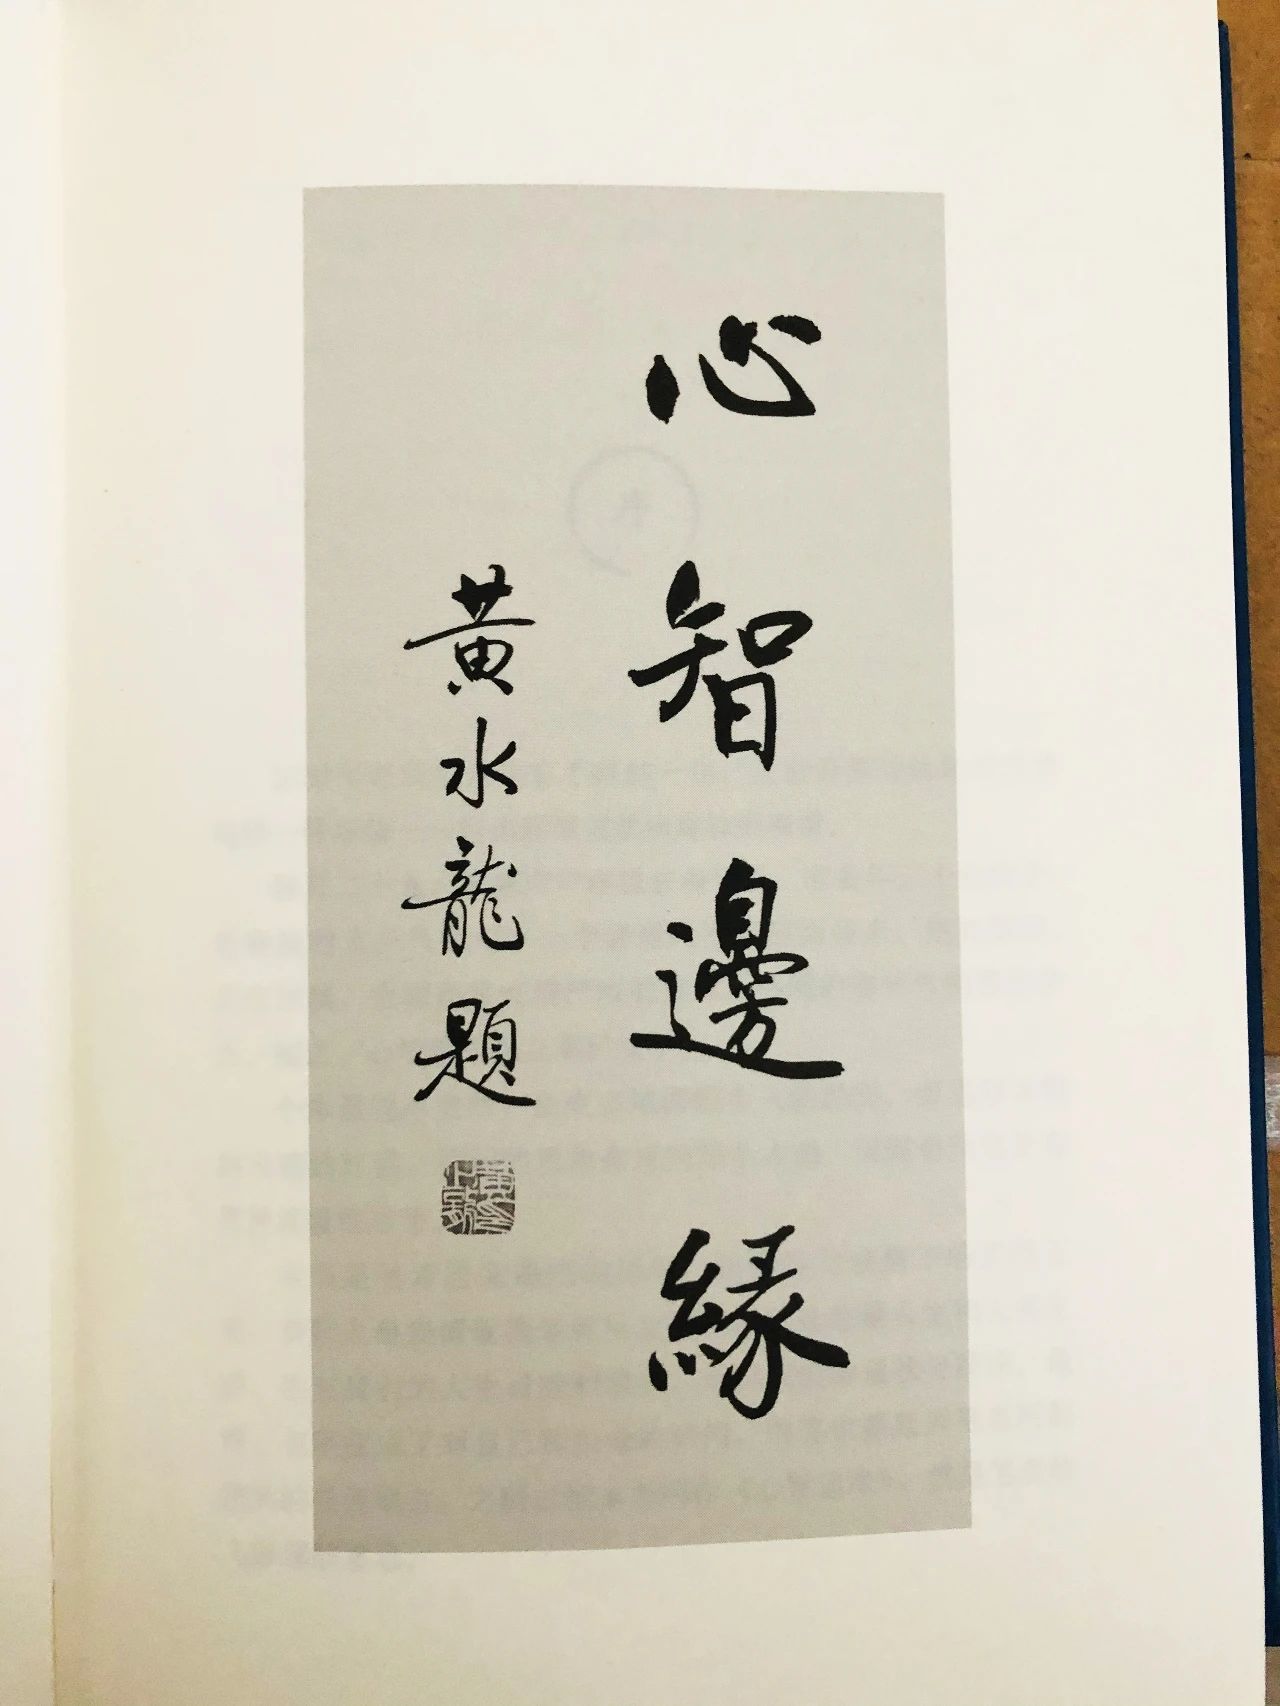 心智邊緣
黄水龍題